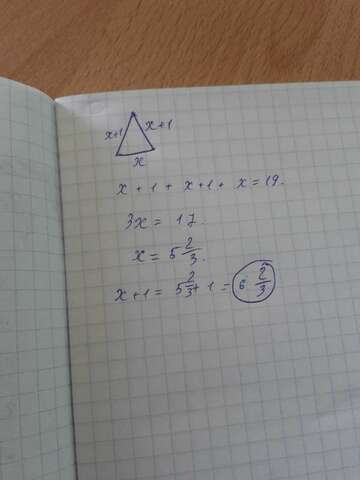 x+1 x+1
x
x + 1 + x+1 + x = 19.
3x = 17
x = 5 2/3.
x+1 = 5 2/3 + 1 = 6 2/3